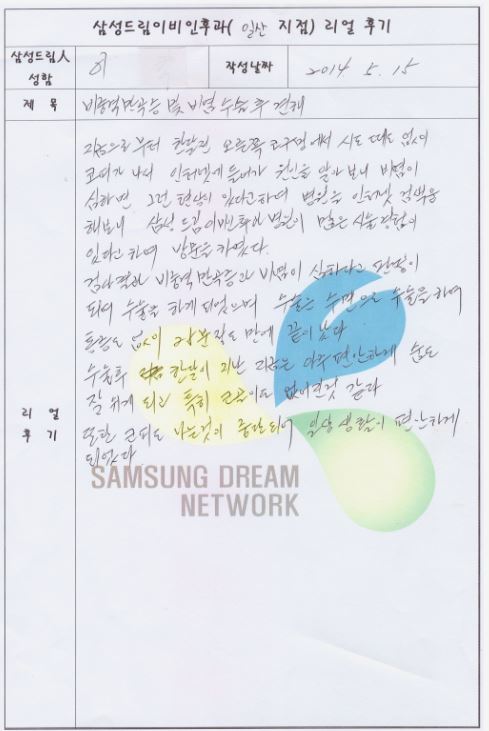 삼성드림이비인후과( 일산 지점) 리얼 후기
삼성드림人
성함
이
작성날짜
2014 5. 15
제 목
비중격만곡증 및 비염 수술 후 견해
리 얼
후 기
지금으로부터 한달전 오른쪽 코구멍에서 시도 때도 없이
코피가 나서 인터넷에 들어가 원인을 알아보니 비염이
심하면 그런 현상이 있다고하여 병원을 인터넷 검색을
해보니 삼성드림이비인후과병원이 많은 시술경험이
있다고 하여 방문을 하였다.
검사결과 비중격만곡증과 비염이 심하다고 판정이
되어 수술을 하게 되었으며 수술은 수면으로 수술을 하여
통증도 없이 정도 만에 끝이 났다
수술후 한달이 지난 지금은 아주 편안하게 숨도
잘 쉬게 되고 특히 코골이도 없어진것 같다
또한 코피도 나는것이 중단되어 일상생활이 편안하게
되었다
SAMSUNG DREAM
NETWORK